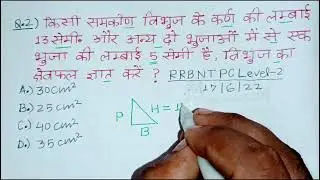 Q.2) किसी समकोण त्रिभुज के कर्ण की लम्बाई
13 सेमी० और अन्य दो भुजाओं में से एक
भुजा की लम्बाई 5 सेमी है, त्रिभुज का
क्षेत्रफल ज्ञात करें ? RRB NTPC Level-2
17/6/22
A.) 30cm²
B.) 25cm²
C.) 40cm²
D.) 35cm²
P
H =
B